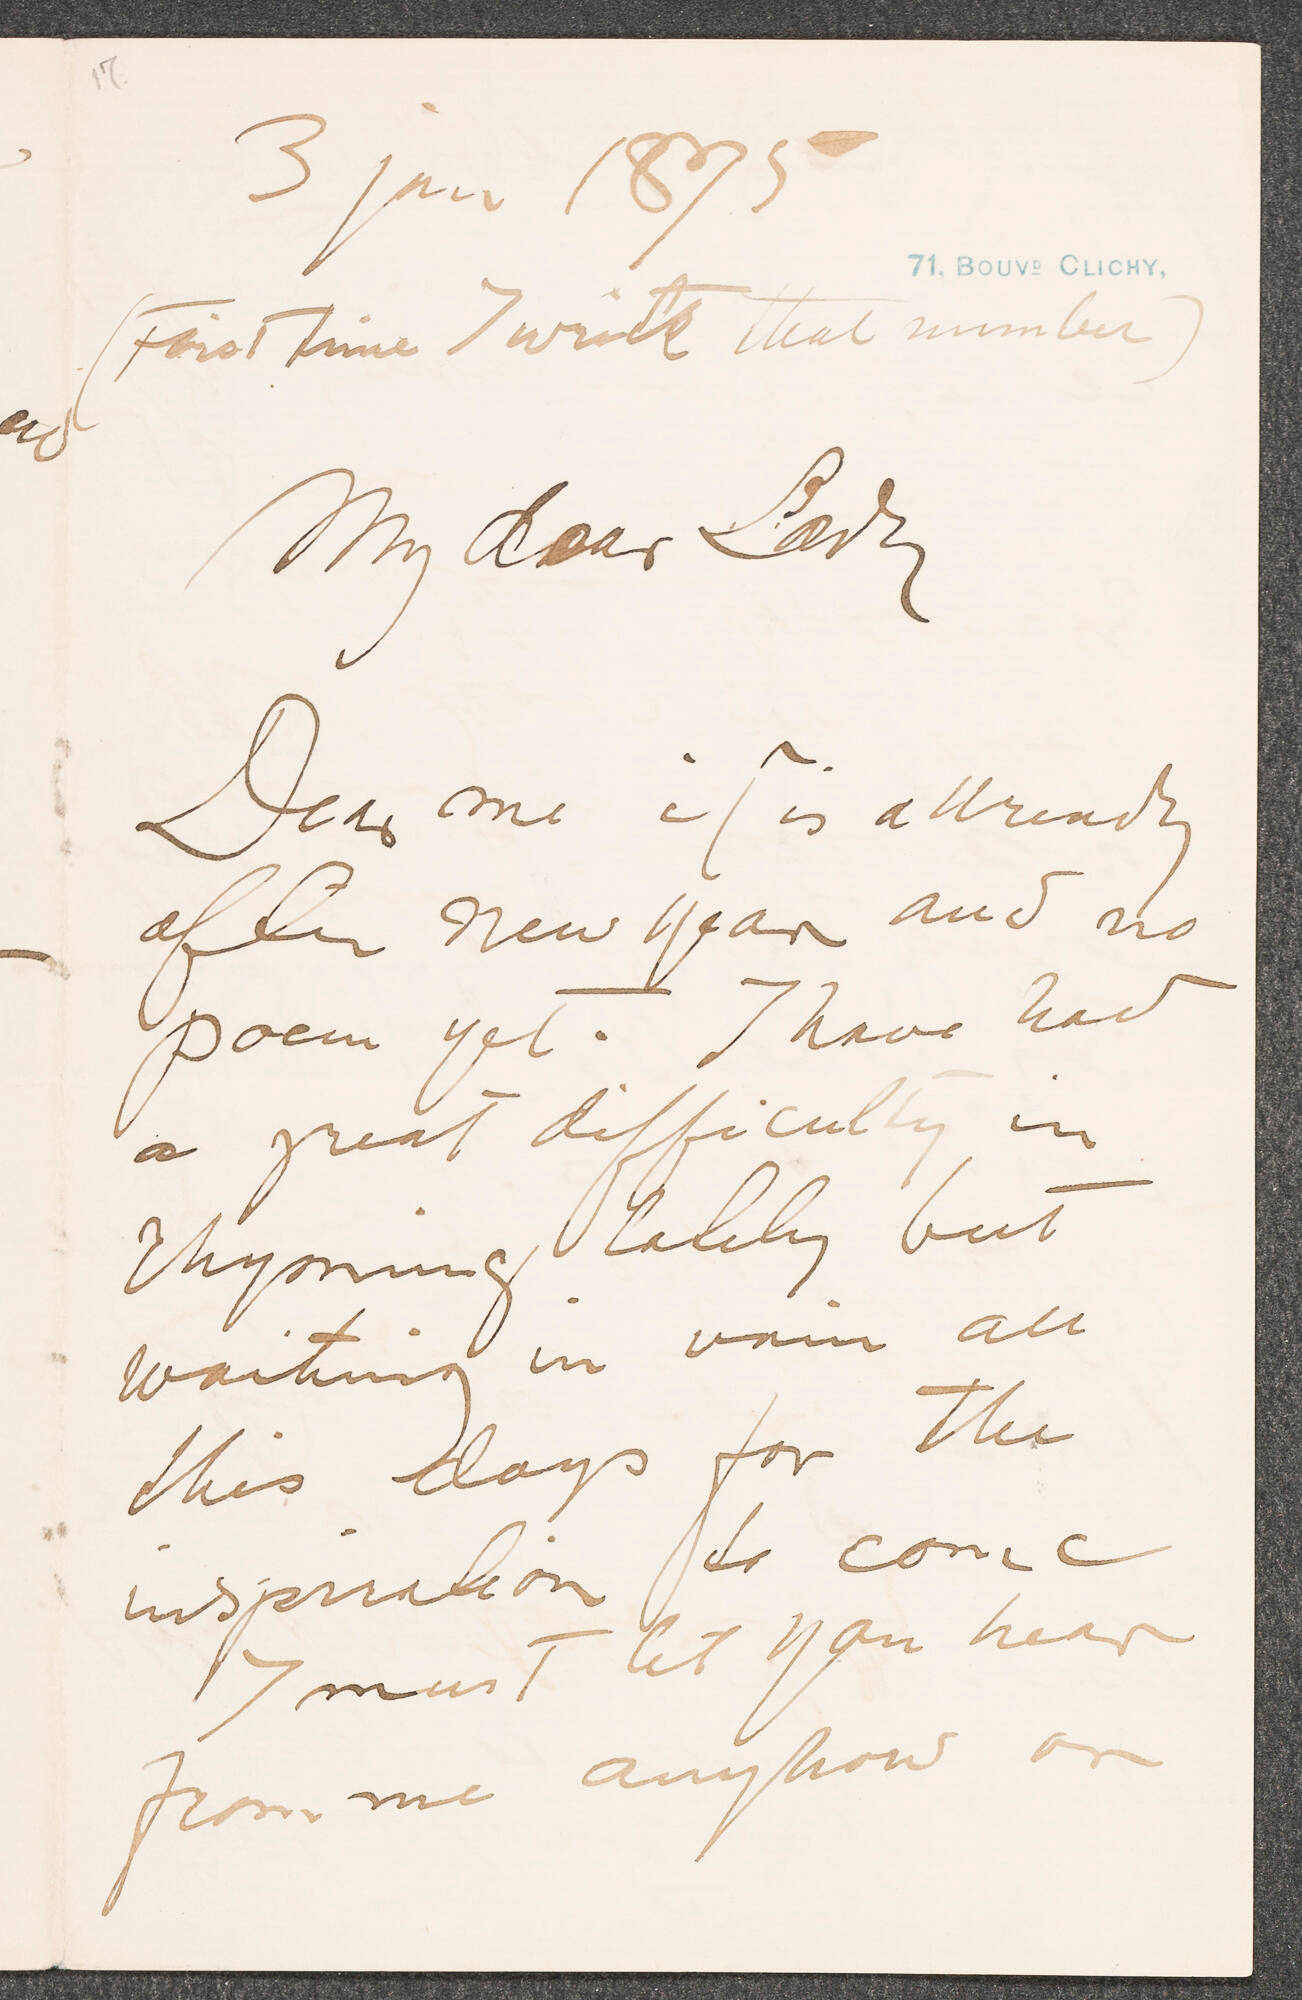 17.
3 jan 1875
71, BOUVD CLICHY,
(First time I write that number)
My dear Lady
Dear me it is allready
after new year and no
poem yet. I have had
a great difficulty in
rhyming lately but
waiting in vain all
this days for the
inspiration to come
I must let you hear
from me anyhow or